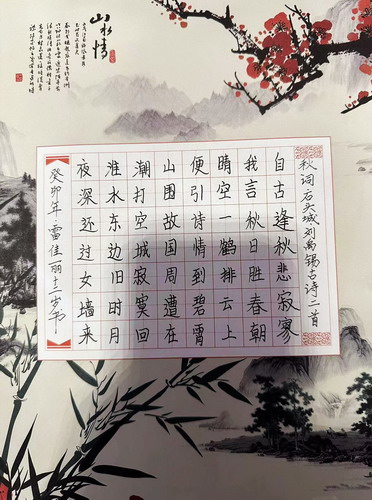 山水情
秋词 石头城 刘禹锡古诗二首
自古逢秋悲寂寥
我言秋日胜春朝
晴空一鹤排云上
便引诗情到碧霄
山围故国周遭在
潮打空城寂寞回
淮水东边旧时月
夜深还过女墙来
癸卯年·雷佳丽十三岁书